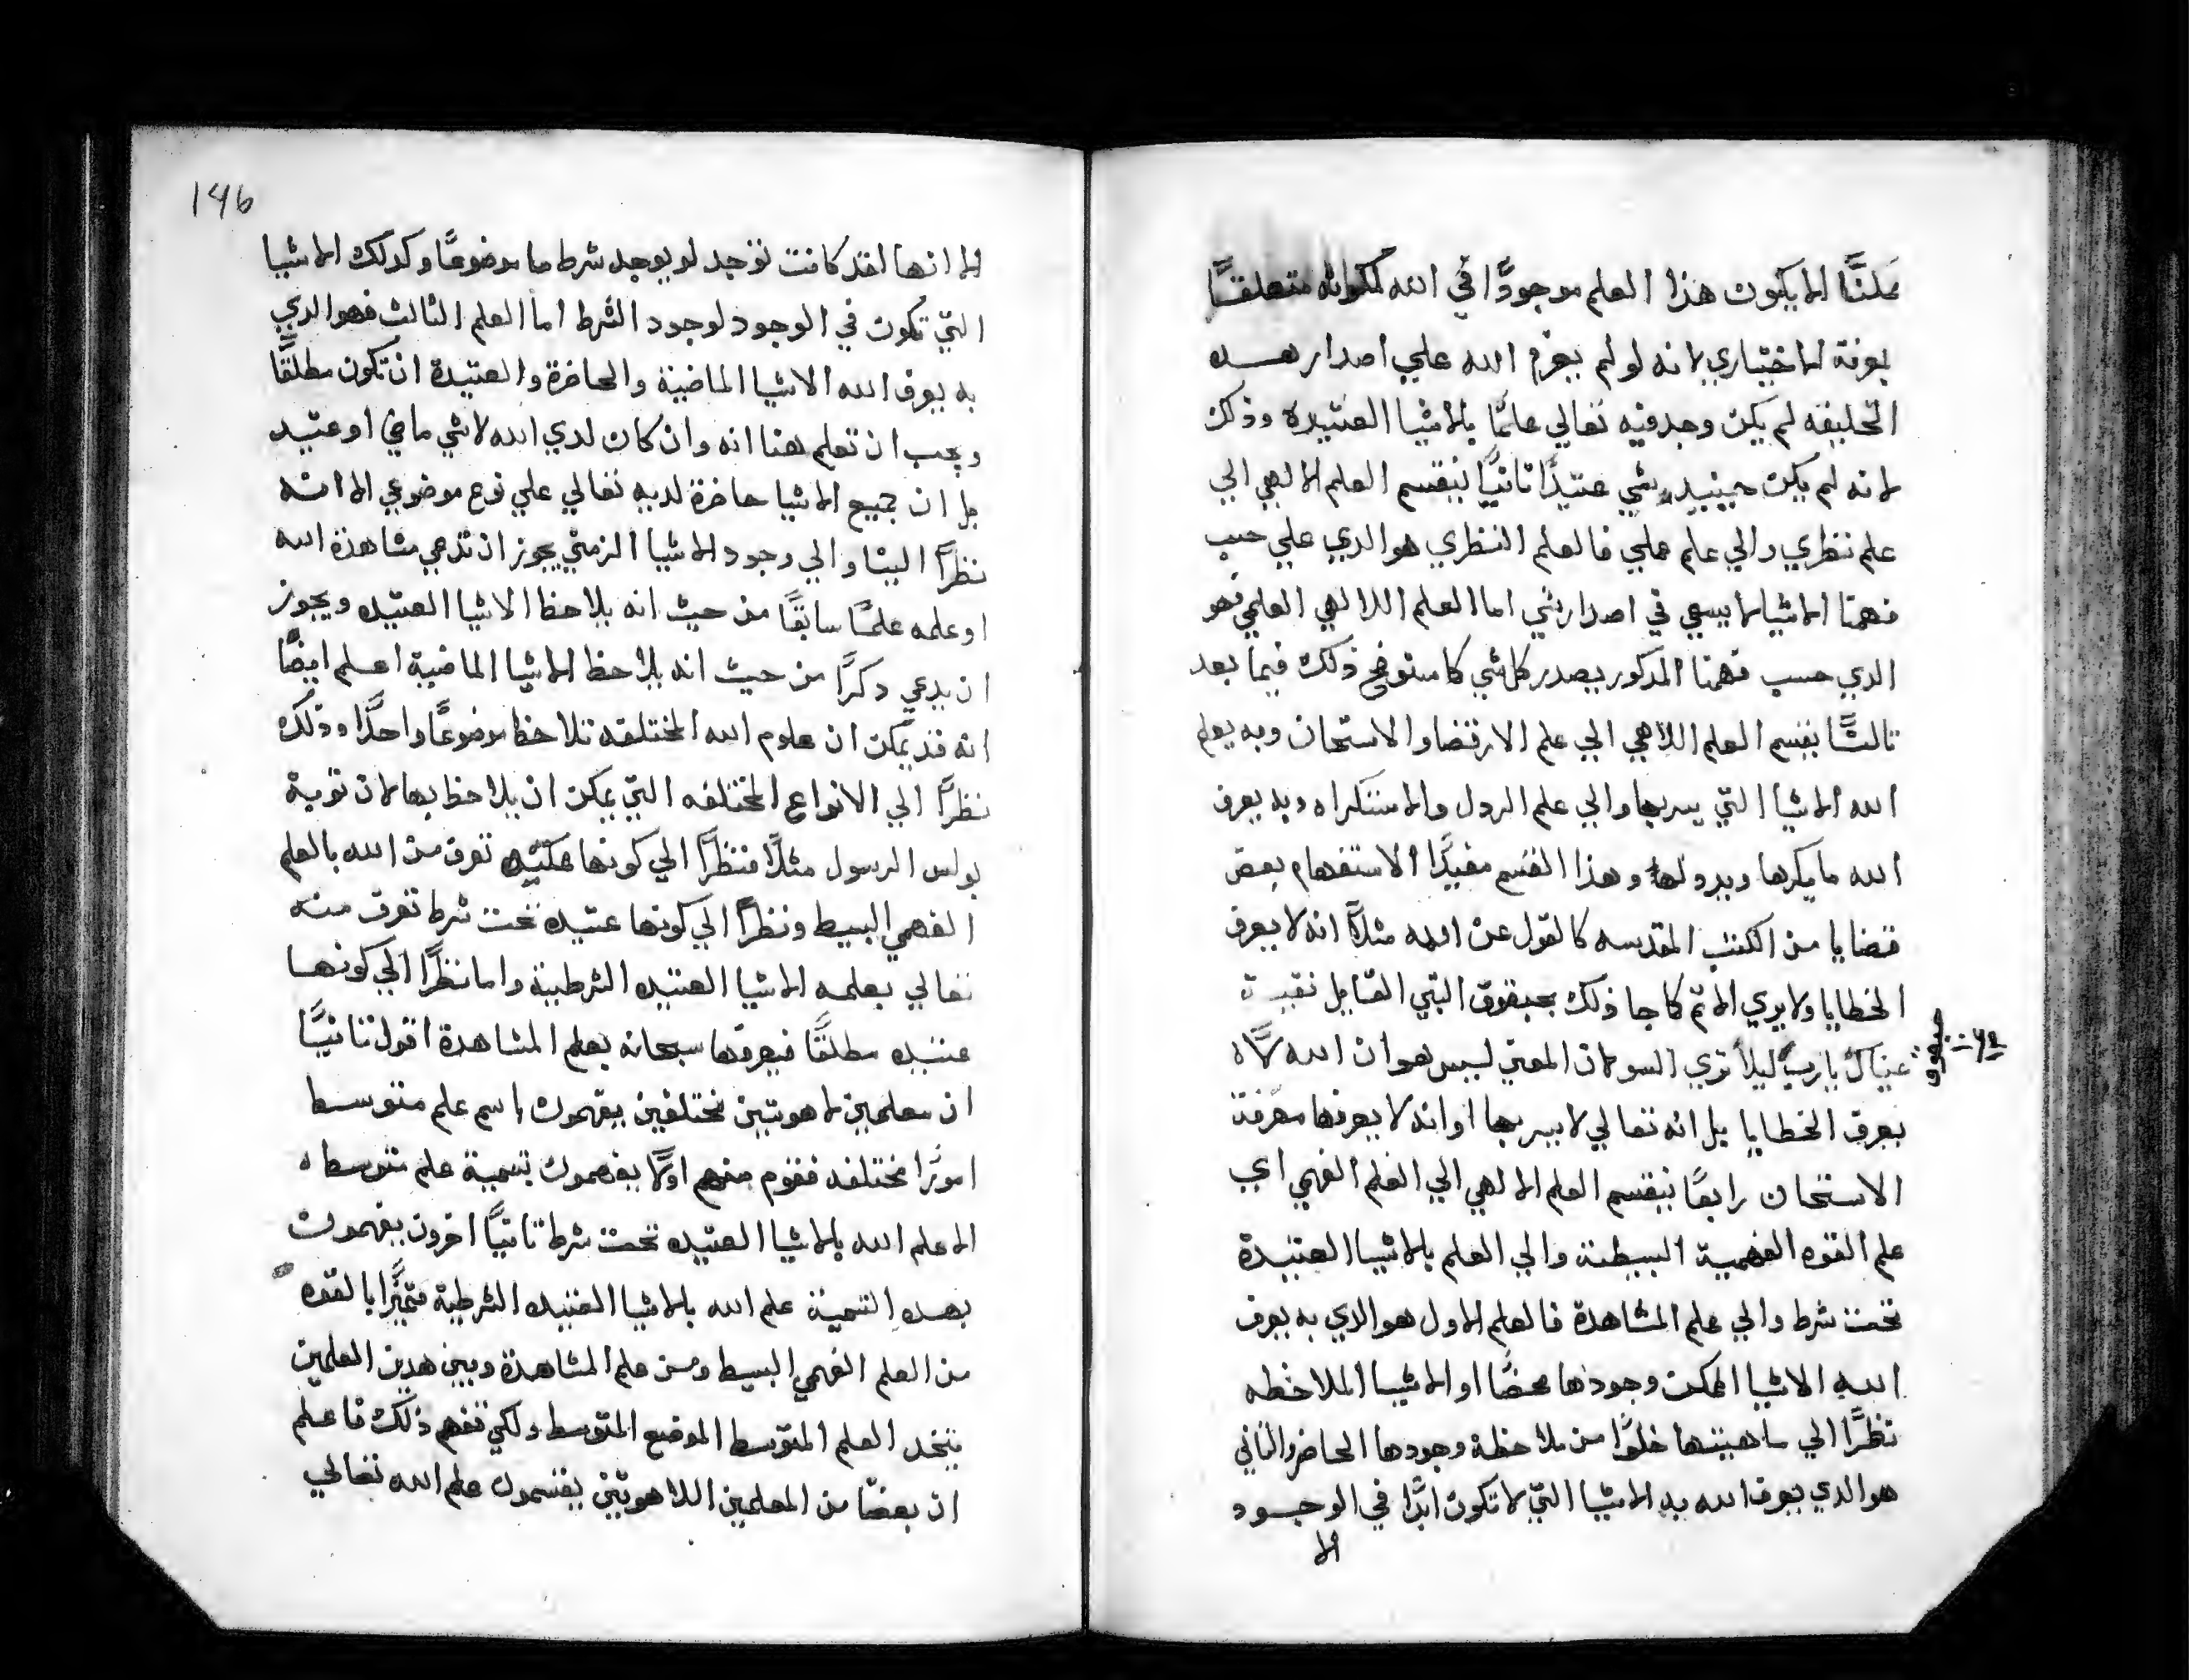 ممكنًا الا يكون هذا العلم موجودًا في الله لكونه متعلقًا
بعزمه الاختياري لانه لو لم يعزم الله علي اصدار هده
الخليقه لم يكن وجد فيه تعالي علمًا بالاشيا العتيدة وذلك
لانه لم يكن حينيد شي عتيدًا ثانيًا ينقسم العلم الالهي الي
علم نظري والي علم عملي فالعلم النظري هو الدي علي حسب
فهمنا الاشيا لا يسعي في اصدار شي اما العلم اللالهي العلمي فهو
الدي حسب فهمنا المدكور يصدر كل شي كما سنوضح ذلك فيما بعد
تالثًا يقسم العلم اللاهي الي علم الارتضا والاستحان وبه يعلم
الله الاشيا التي يسر بها والي علم الردل والاستكراه وبه يعرف
الله ما يكرها ويردلها وهذا القسم مفيدًا لاستفهام بعض
قضايا من الكتب المقدسه كالقول عن الله مثلاً انه لا يعرف
الخطايا ولا يري الاتم كما جا ذلك بحبقوق النبي القايل نقيـة
عيناك يارب ليلا تري السو لان المعني ليس هو ان الله لا
حبقوق
يعرف الخطايا بل انه تعالي لا يسر بها او انه لا يعرفها معرفة
الاستحان رابعًا ينقسم العلم الالهي الي العلم الفهمي اي
علم القوه الفهمية البسيطة والي العلم بالاشيا العتيدة
تحت شرط والي علم المشاهدة فالعلم الاول هو الدي به يعرف
الله الاشيا الممكن وجودها محضًا او الاشيا الملاحظه
نظرًا الي ماهيتها خلوًا من ملاحظة وجودها الحاضر والثاني
هو الدي يعرف الله به الاشيا التي لا تكون ابدًا في الوجـود
الا
146
الا انها لقد كانت توجد لو يوجد شرط ما موضوعًا وكدلك الاشيا
التي تكون في الوجود لوجود الشرط اما العلم الثالث فهو الدي
به يعرف الله الاشيا الماضية والحاضرة والعتيدة ان تكون مطلقًا
ويجب ان تعلم هنا انه وان كان لدي الله لا شي ماضي او عتيد
بل ان جميع الاشيا حاضرة لديه تعالي علي نوع موضوعي الا انه
نظرًا الينا والي وجود الاشيا الزمني يجوز ان تدعي مشاهدة الله
او علمه علمًا سابقًا من حيث انه يلاحظ الاشيا العتيده ويجوز
ان يدعي دكرًا من حيث انه يلاحظ الاشيا الماضية اعلم ايضًا
انه قد يمكن ان علوم الله المختلفه تلاحظ موضوعًا واحدًا وذلك
نظرًا الي الانواع المختلفه التي يمكن ان يلاحظ بها لان توبة
بولس الرسول مثلاً فنظرًا الي كونها ممكنه تعرف من الله بالعلم
الفهمي البسيط ونظرًا الي كونها عتيده تحت شرط تعرف منه
تعالي بعلمه الاشيا العتيده الشرطية واما نظرًا الي كونهـا
عتيده مطلقًا فيعرفها سبحانه بعلم المشاهدة اقول ثانيًا
ان معلمين لاهوتيين مختلفين يفهمون باسم علم متوسط
امورًا مختلفه فقوم منهم اولاً يفهمون بتسمية علم متوسط
الا علم الله بالاشيا العتيده تحت شرط ثانيًا اخرون يفهمون
بهده التسمية علم الله بالاشيا العتيده الشرطية متميزًا بالقوه
من العلم الفهمي البسيط ومن علم المشاهدة وبين هدين العلمين
يتخد العلم المتوسط الموضع المتوسط ولكي تفهم ذلك فاعلم
ان بعضًا من المعلمين اللاهوتين يقسمون علم الله تعالي